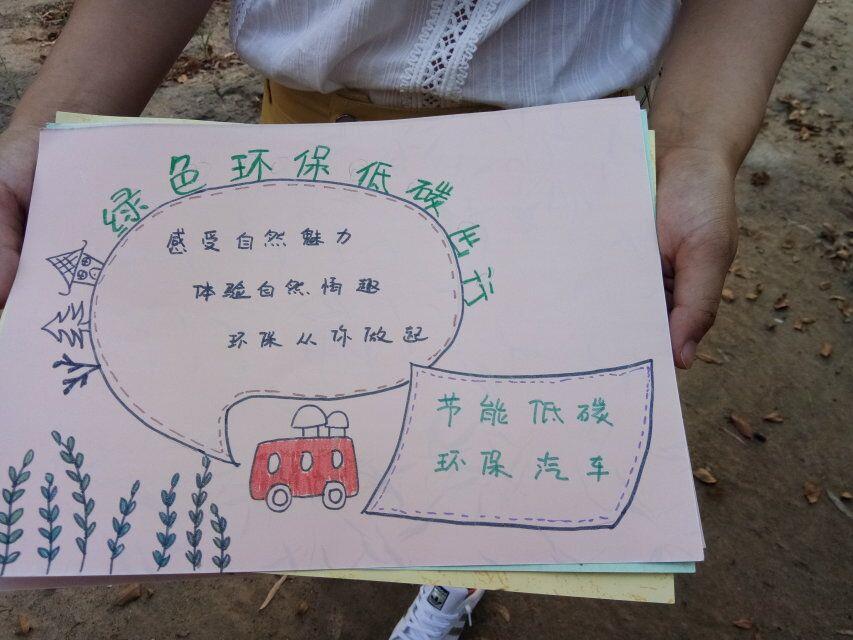 绿色环保低碳出行
感受自然魅力
体验自然情趣
环保从你做起
节能低碳
环保汽车